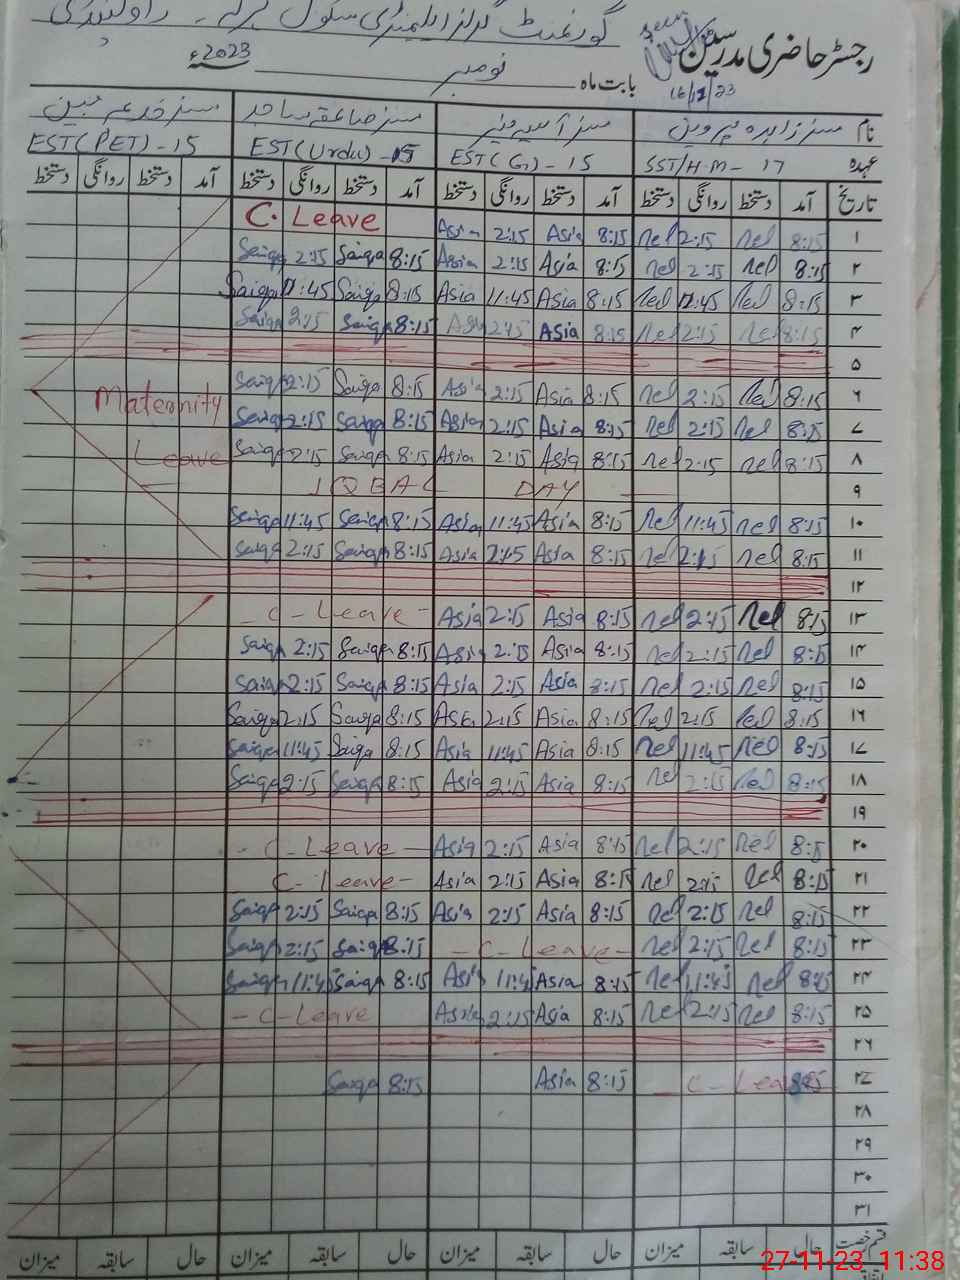 گورنمنٹ گرلز ایلیمنٹری سکول
راولپنڈی
رجسٹر حاضری مدرسین
16/11/23
بابت ماہ نومبر 2023ء
نام مسز زاہدہ پروین مسز آسیہ منیر مسز صاعقہ ساجد مسز خدیجہ مبین
عہدہ SST/H.M - 17 EST(G) - 15 EST(Urdu) - 15 EST(PET) - 15
تاریخ آمد دستخط روانگی دستخط آمد دستخط روانگی دستخط آمد دستخط روانگی دستخط آمد دستخط روانگی دستخط
۱ 8:15 nel 2:15 nel 8:15 Asia 2:15 Asia C. Leave
۲ 8:15 nel 2:15 nel 8:15 Asia 2:15 Asia 8:15 Saiqa 2:15 Saiqa
۳ 8:15 nel 11:45 nel 8:15 Asia 11:45 Asia 8:15 Saiqa 11:45 Saiqa
۴ 8:15 nel 2:15 nel 8:15 Asia 2:15 Asia 8:15 Saiqa 2:15 Saiqa
۵
۶ 8:15 nel 2:15 nel 8:15 Asia 2:15 Asia 8:15 Saiqa 2:15 Saiqa Maternity
۷ 8:15 nel 2:15 nel 8:15 Asia 2:15 Asia 8:15 Saiqa 2:15 Saiqa
۸ 8:15 nel 2:15 nel 8:15 Asia 2:15 Asia 8:15 Saiqa 2:15 Saiqa Leave
۹ IQBAL DAY
۱۰ 8:15 nel 11:45 nel 8:15 Asia 11:45 Asia 8:15 Saiqa 11:45 Saiqa
۱۱ 8:15 nel 2:15 nel 8:15 Asia 2:15 Asia 8:15 Saiqa 2:15 Saiqa
۱۲
۱۳ 8:15 nel 2:15 nel 8:15 Asia 2:15 Asia - C - Leave -
۱۴ 8:15 nel 2:15 nel 8:15 Asia 2:15 Asia 8:15 Saiqa 2:15 Saiqa
۱۵ 8:15 nel 2:15 nel 8:15 Asia 2:15 Asia 8:15 Saiqa 2:15 Saiqa
۱۶ 8:15 nel 2:15 nel 8:15 Asia 2:15 Asia 8:15 Saiqa 2:15 Saiqa
۱۷ 8:15 nel 11:45 nel 8:15 Asia 11:45 Asia 8:15 Saiqa 11:45 Saiqa
۱۸ 8:15 nel 2:15 nel 8:15 Asia 2:15 Asia 8:15 Saiqa 2:15 Saiqa
۱۹
۲۰ 8:15 nel 2:15 nel 8:15 Asia 2:15 Asia - C - Leave -
۲۱ 8:15 nel 2:15 nel 8:15 Asia 2:15 Asia C - Leave -
۲۲ 8:15 nel 2:15 nel 8:15 Asia 2:15 Asia 8:15 Saiqa 2:15 Saiqa
۲۳ 8:15 nel 2:15 nel - C - Leave - 8:15 Saiqa 2:15 Saiqa
۲۴ 8:15 nel 11:45 nel 8:15 Asia 11:45 Asia 8:15 Saiqa 11:45 Saiqa
۲۵ 8:15 nel 2:15 nel 8:15 Asia 2:15 Asia - C - Leave
۲۶
۲۷ C - Leave 8:15 Asia 8:15 Saiqa
۲۸
۲۹
۳۰
۳۱
قسم رخصت حال سابقہ میزان حال سابقہ میزان حال سابقہ میزان حال سابقہ میزان
27-11-23 11:38